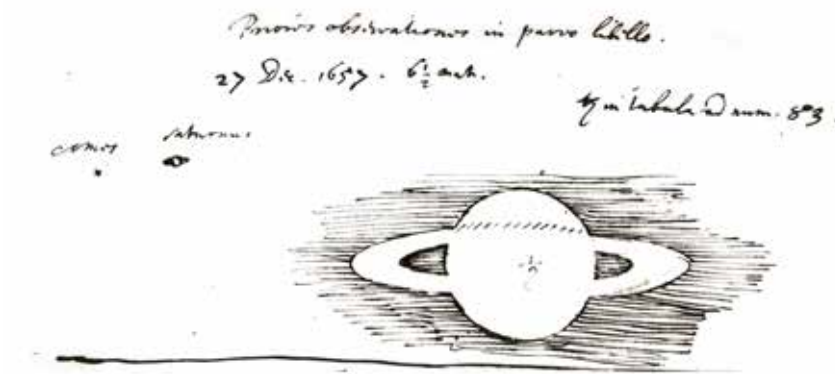 Priores observationes in parvo libello.
27 Dec. 1657. 6½ mat.
in tabula ad num. 8
comes saturnus